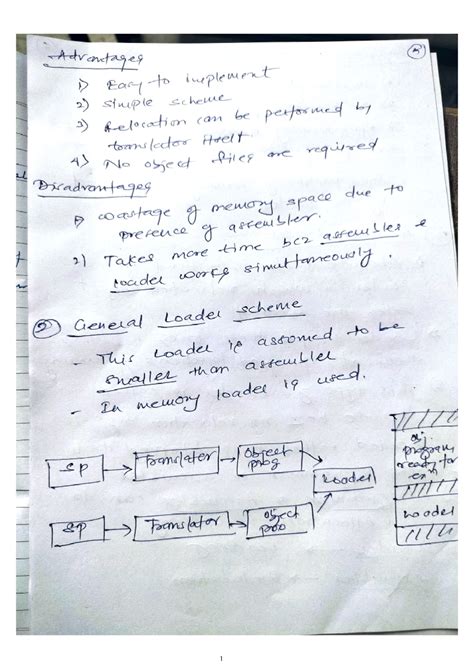 Advantages
1) Easy to implement
2) Simple scheme
3) Relocation can be performed by
translator itself
4) No object files are required
Disadvantages
1) wastage of memory space due to
presence of assembler.
2) Takes more time bcz assembler &
loader works simultaneously.
2) General Loader scheme
- This Loader is assumed to be
smaller than assembler
- In memory loader is used.
SP → Translater → Object prog
Loader
SP → Translator → Object prog
obj
program
ready for
exn
Loader
1